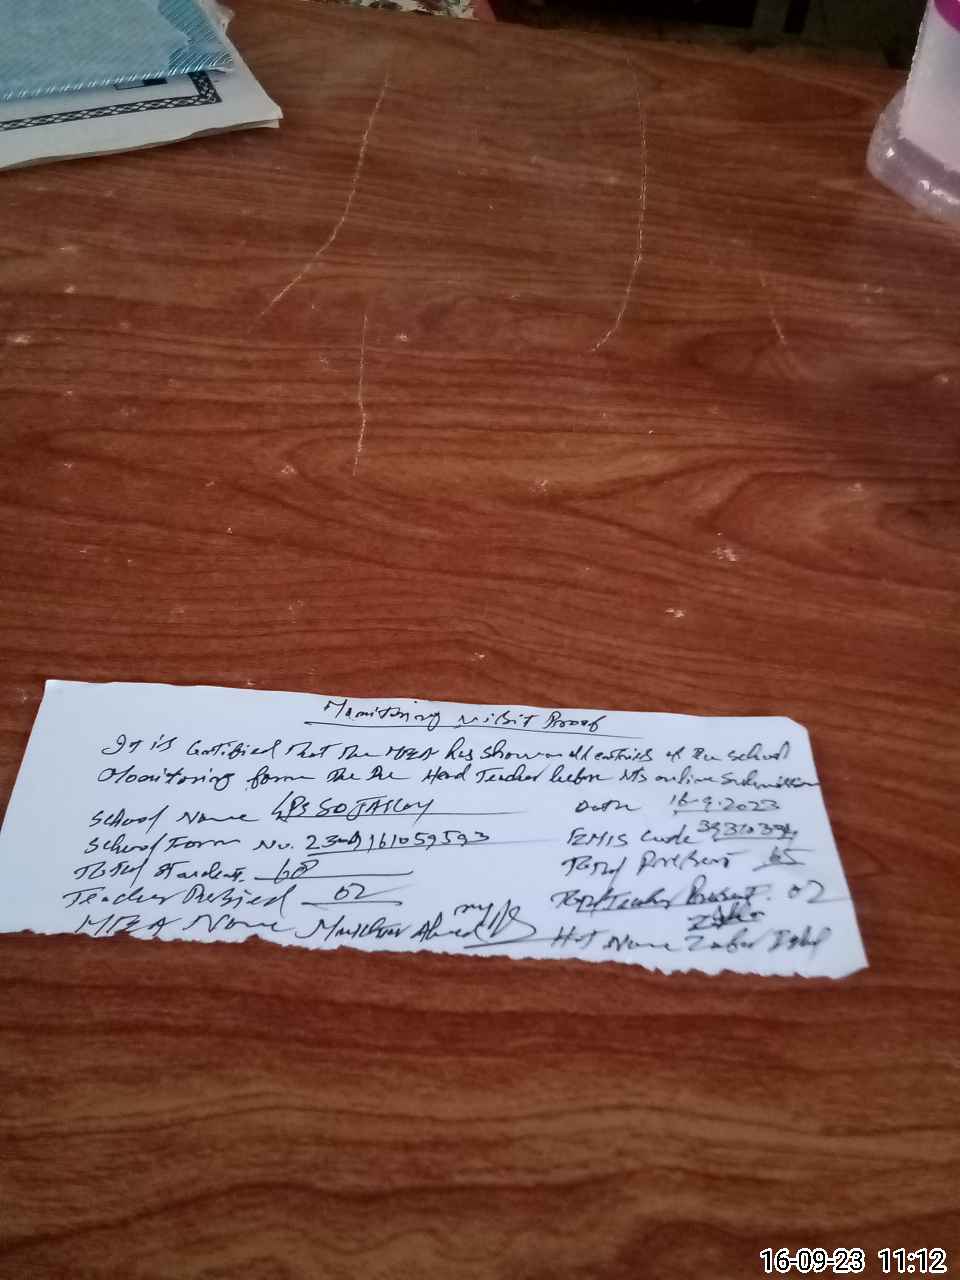 Monitoring Visit Proof
It is Certified that the MEA has shown all entries of the school
Monitoring form the the Head Teacher before its online Submission
School Name GPS SOJA
Date 16-9-2023
School Form No.
EMIS Code
Total Student 68
Total Present 65
Teacher Posted 02
Total Teacher Present. 02
MEA Name Ahmed
H.T Name Zafar Iqbal
16-09-23 11:12